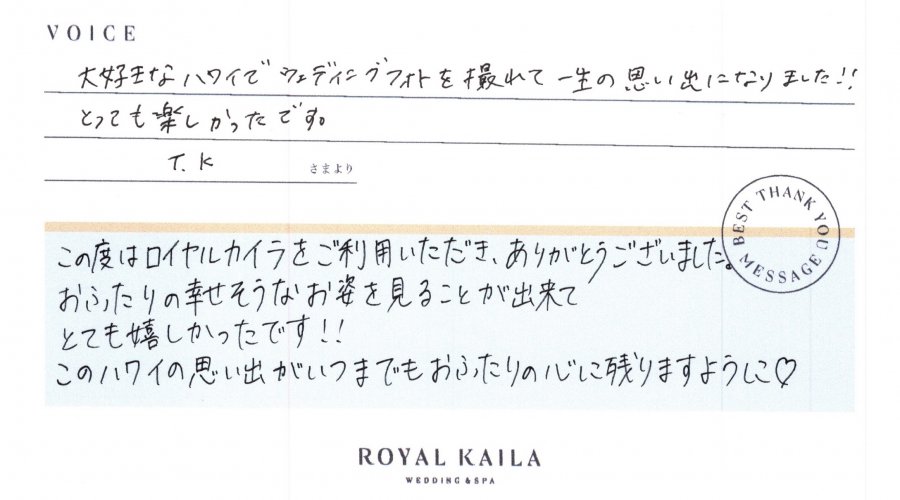 VOICE
大好きなハワイでウェディングフォトを撮れて一生の思い出になりました!!
とっても楽しかったです。
T.K さまより
BEST THANK YOU MESSAGE
この度はロイヤルカイラをご利用いただき、ありがとうございました。
おふたりの幸せそうなお姿を見ることが出来て
とても嬉しかったです!!
このハワイの思い出がいつまでもおふたりの心に残りますように♡
ROYAL KAILA
WEDDING & SPA